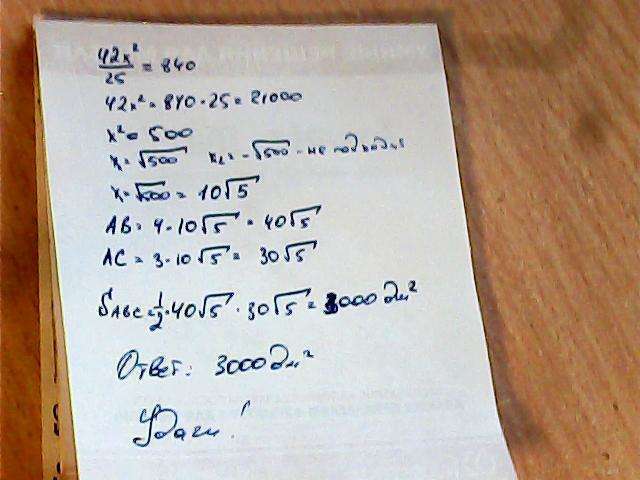 42x²/25 = 840
42x² = 840 · 25 = 21000
x² = 500
x = √500 x₂ = -√500 - не подходит
x = √500 = 10√5
AB = 4 · 10√5 = 40√5
AC = 3 · 10√5 = 30√5
S ABC = 1/2 · 40√5 · 30√5 = 3000 дм²
Ответ: 3000 дм²
Удачи!